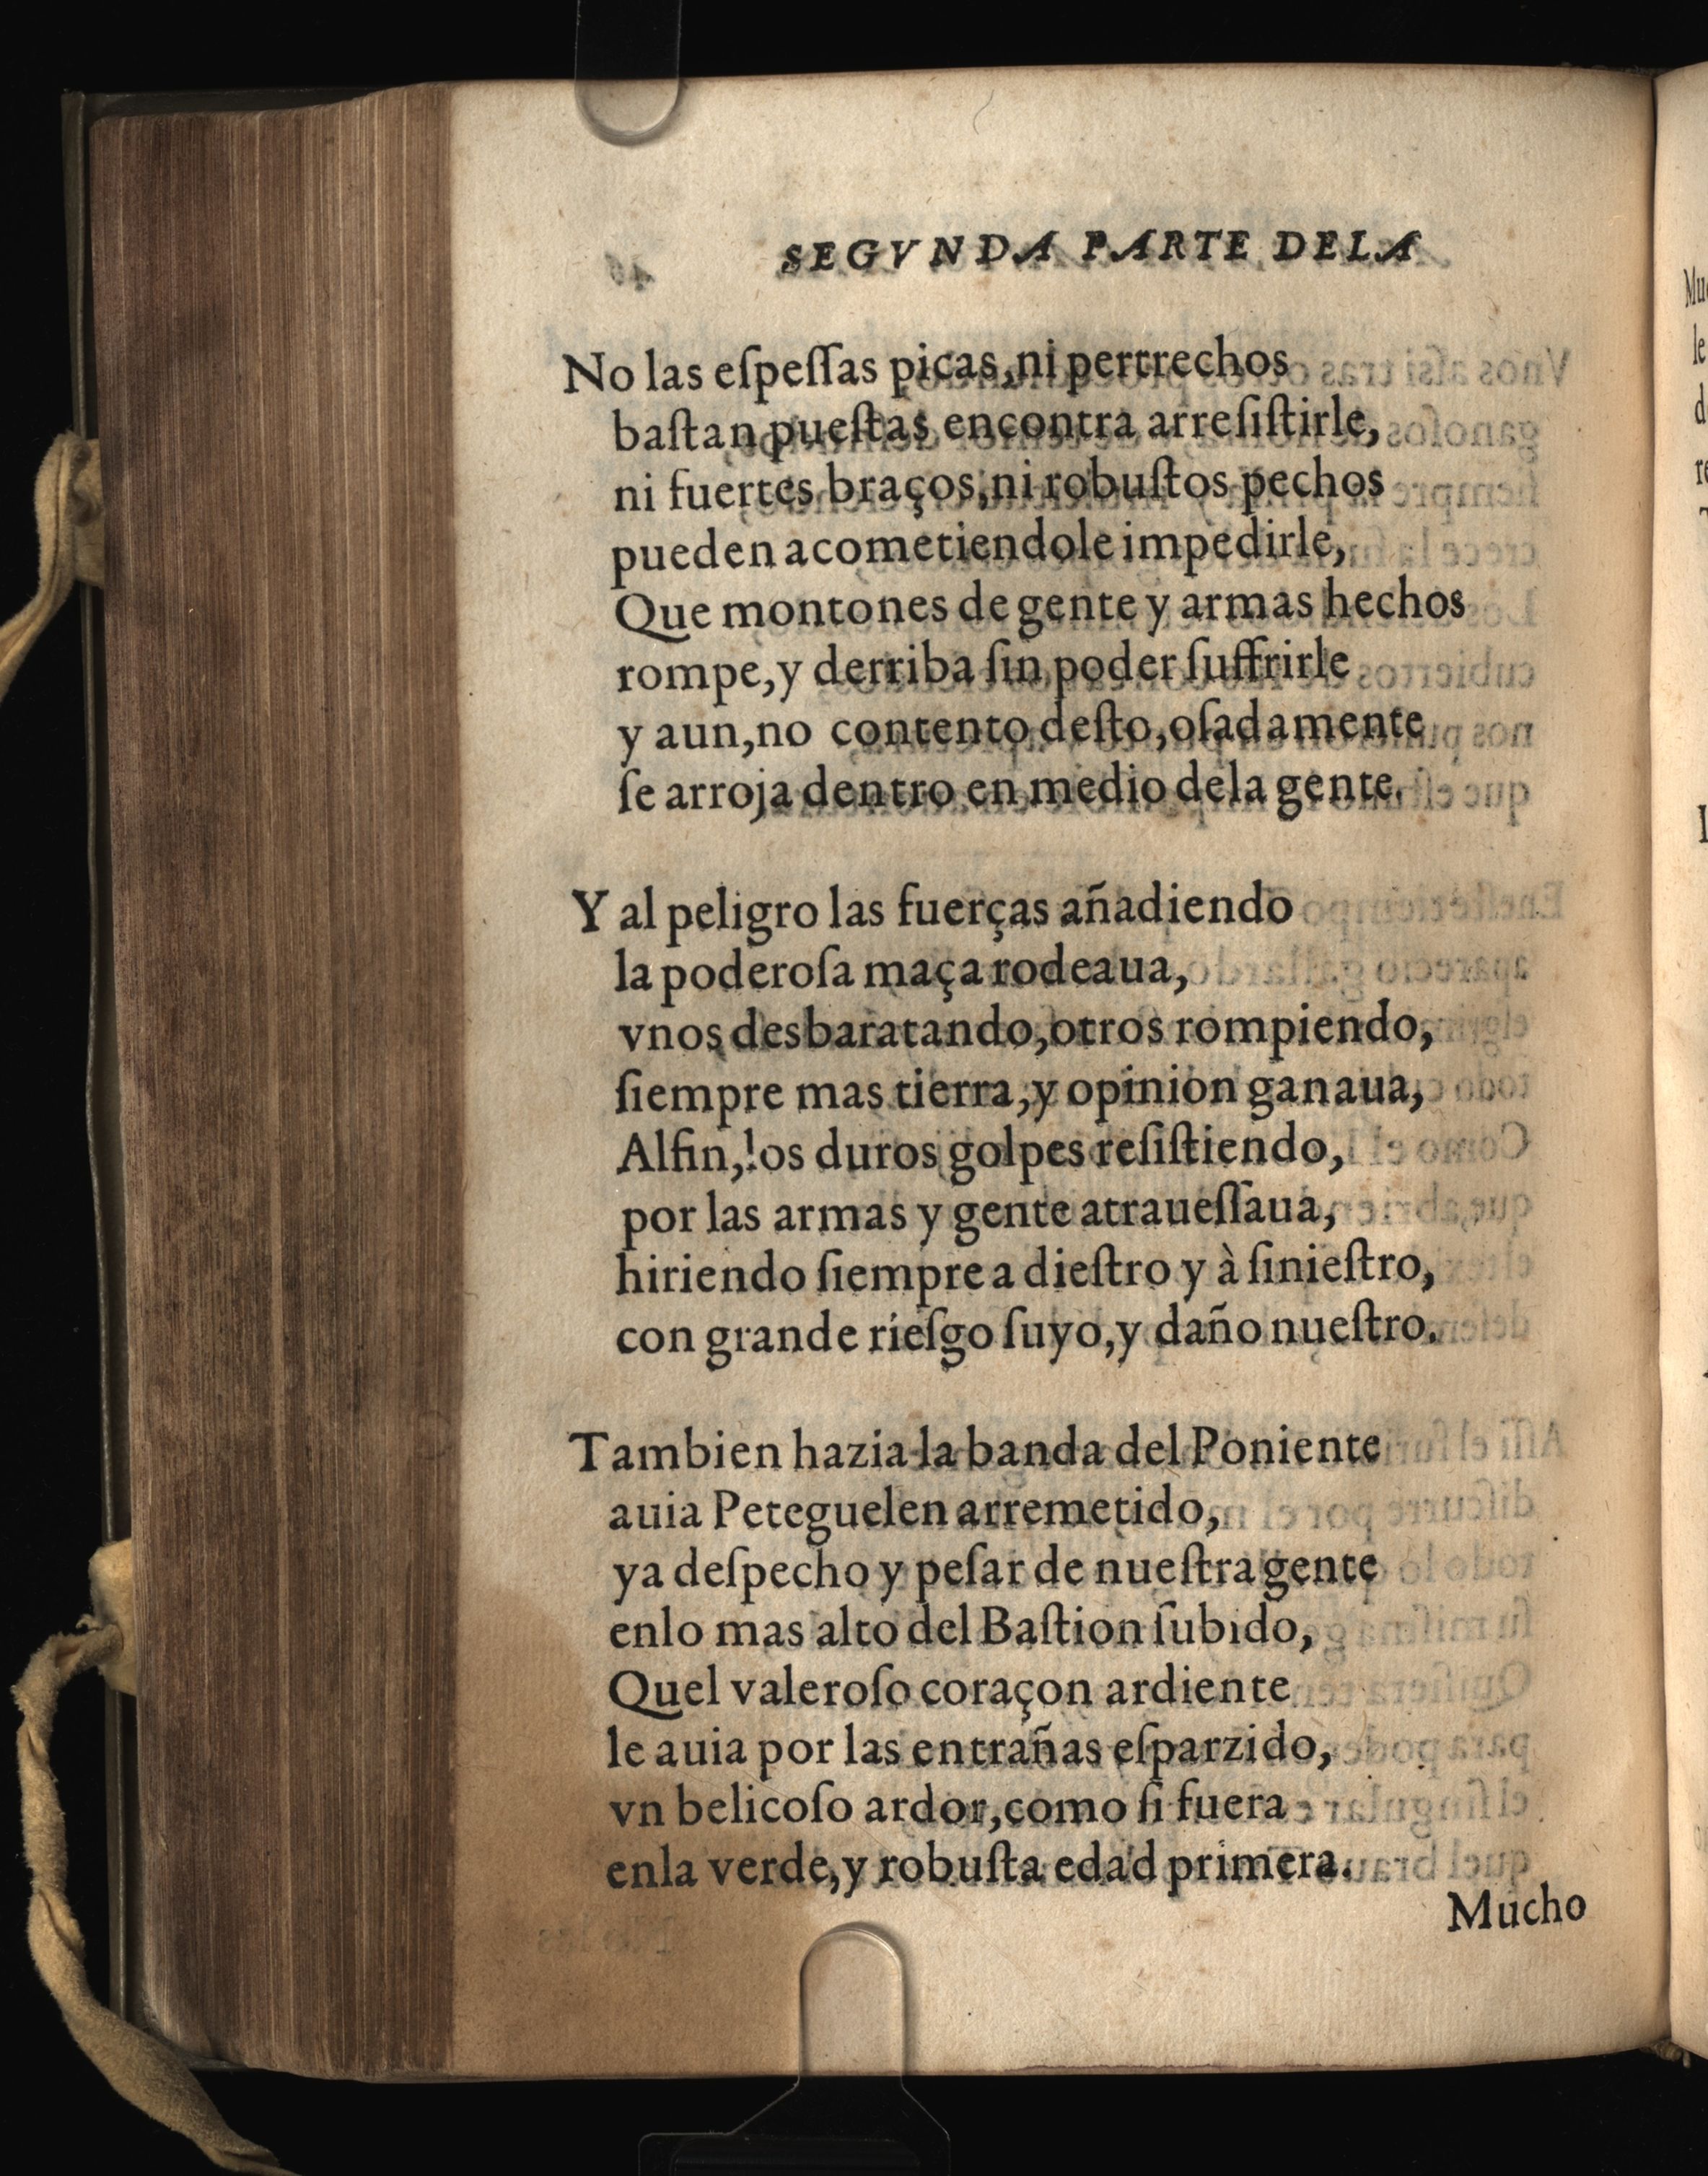 SEGVNDA PARTE DELA
No las eſpeſſas picas,ni pertrechos
baſtan pueſtas encontra arreſiſtirle,
ni fuertes braços,ni robuſtos pechos
pueden acometiendole impedirle,
Que montones de gente y armas hechos
rompe,y derriba ſin poder ſuffrirle
y aun,no contento deſto,oſadamente
ſe arroja dentro en medio dela gente.
Y al peligro las fuerças añadiendo
la poderoſa maça rodeaua,
vnos desbaratando,otros rompiendo,
ſiempre mas tierra,y opinion ganaua,
Alfin,los duros golpes reſiſtiendo,
por las armas y gente atraueſſaua,
hiriendo ſiempre a dieſtro y à ſinieſtro,
con grande rieſgo ſuyo,y daño nueſtro.
Tambien hazia la banda del Poniente
auia Peteguelen arremetido,
ya deſpecho y peſar de nueſtra gente
enlo mas alto del Baſtion ſubido,
Quel valeroſo coraçon ardiente
le auia por las entrañas eſparzido,
vn belicoſo ardor,como ſi fuera
enla verde,y robuſta edad primera.
Mucho